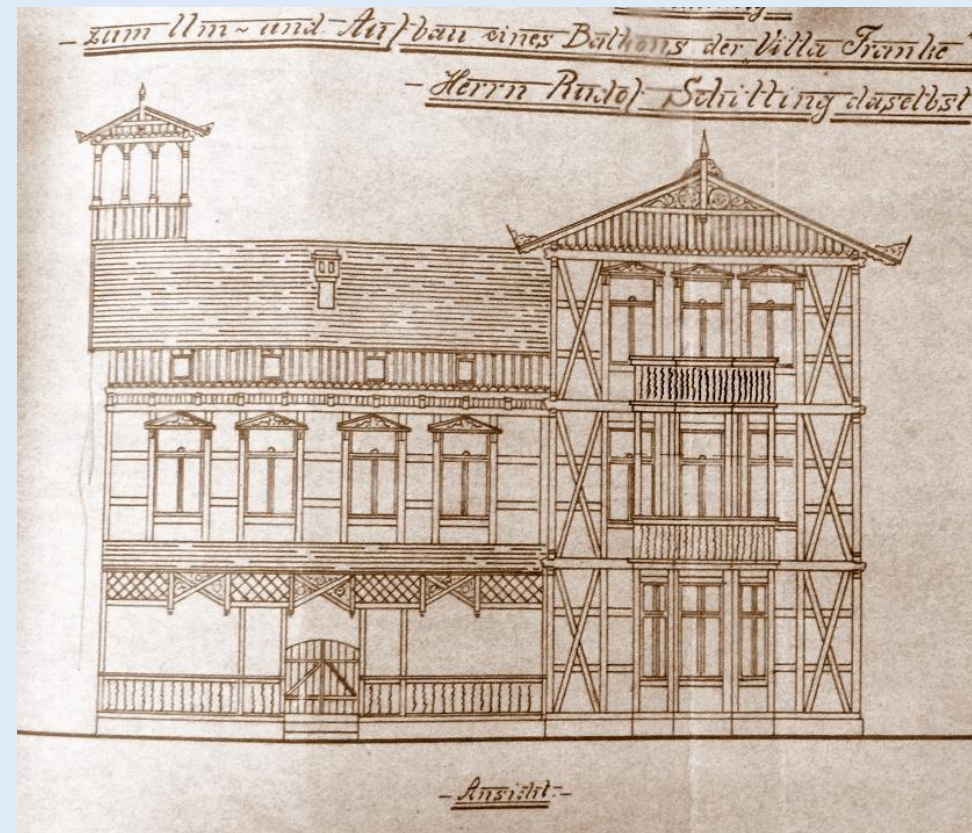 - zum Um- und Aufbau eines Balkons der Villa Franke
- Herrn Rudolf Schilling daselbst
- Ansicht -